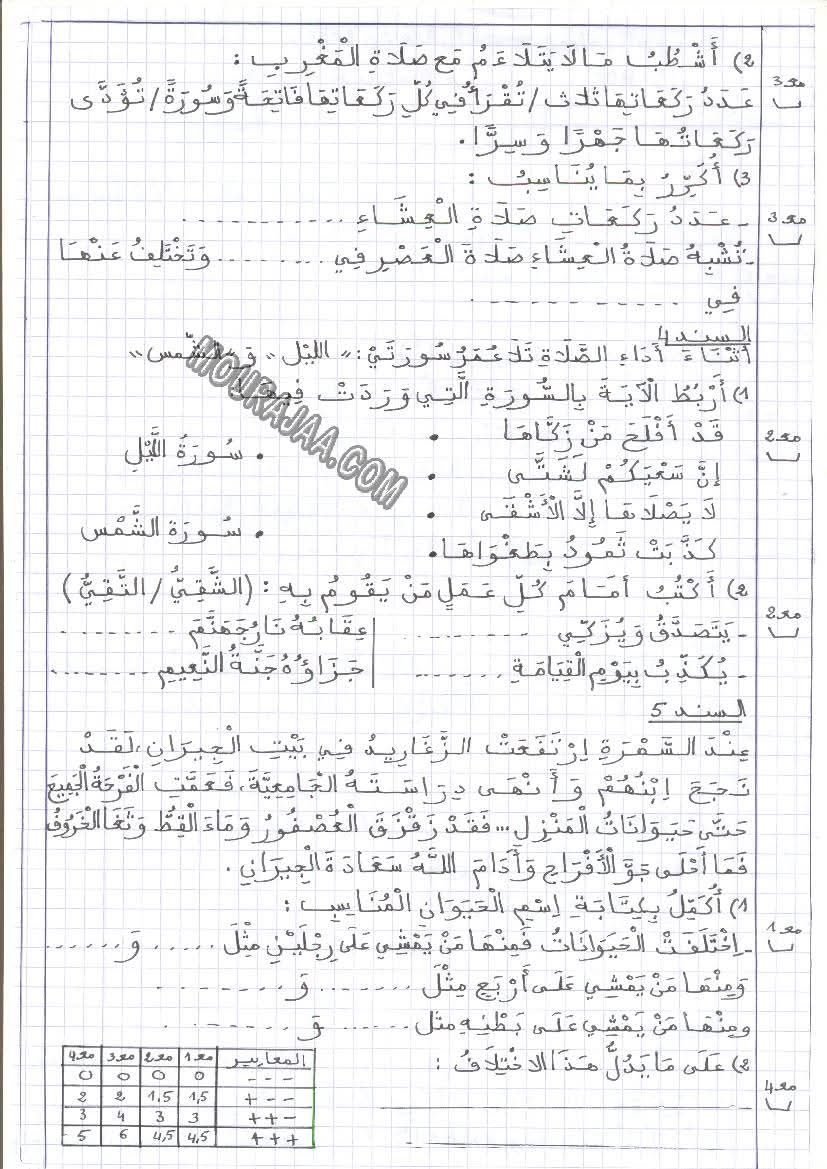 2) أَشْطُبُ مَا لَا يَتَلَاءَمُ مَعَ صَلَاةِ الْمَغْرِبِ :
عَدَدُ رَكَعَاتِهَا ثلاث / تُقْرَأُ فِي كُلِّ رَكَعَاتِهَا فَاتِحَةٌ وَسُورَةٌ / تُؤَدَّى
رَكَعَاتُهَا جَهْرًا وَ سِرًّا .
مع3
3) أُكَرِّرُ بِمَا يُنَاسِبُ :
- عَدَدُ رَكَعَاتِ صَلَاةِ الْعِشَاءِ ..........
مع3
- تُشْبِهُ صَلَاةُ الْعِشَاءِ صَلَاةَ الْعَصْرِ فِي ......... وَتَخْتَلِفُ عَنْهَا
فِي ............
السند 4
أَثْنَاءَ أَدَاءِ الصَّلَاةِ تَلَا عُمَرُ سُورَتَيْ : "الليْل" وَ "الشّمس"
1) أَرْبُطُ الْآيَةَ بِالسُّورَةِ الَّتِي وَرَدَتْ فِيهَا:
قَدْ أَفْلَحَ مَنْ زَكَّاهَا •
مع2
• سُورَةُ اللَّيْلِ
إِنَّ سَعْيَكُمْ لَشَتَّى •
لَا يَصْلَاهَا إِلَّا الْأَشْقَى •
• سُورَة الشَّمْس
كَذَّبَتْ ثَمُودُ بِطَغْوَاهَا •
2) أَكْتُبُ أمَامَ كُلِّ عَمَلٍ مَنْ يَقُومُ بِهِ : (الشَّقِيُّ / التَّقِيُّ)
- يَتَصَدَّقُ وَ يُزَكِّي .......... عِقَابُهُ نَارُ جَهَنَّمَ ........
مع2
- يُكَذِّبُ بِيَوْمِ الْقِيَامَةِ ....... جَزَاؤُهُ جَنَّةُ النَّعِيمِ ........
السند 5
عِنْدَ السَّهْرَةِ اِرْتَفَعَتْ الزَّغَارِيدُ فِي بَيْتِ الْجِيرَانِ، لَقَدْ
نَجَحَ اِبْنُهُمْ وَ أَنْهَى دِرَاسَتَهُ الْجَامِعِيَّةَ، فَعَمَّتِ الْفَرْحَةُ الْجَمِيعَ
حَتَّى حَيَوَانَاتُ الْمَنْزِلِ ... فَقَدْ زَقْزَقَ الْعُصْفُورُ وَمَاءَ الْقِطُّ وَثَغَا الْخَرُوفُ
فَمَا أَحْلَى جَوَّ الْأَفْرَاحِ وَ أَدَامَ اللَّهُ سَعَادَةَ الْجِيرَانِ .
1) أُكَمِّلُ بِكِتَابَةِ اِسْمِ الْحَيَوَانِ الْمُنَاسِبِ :
- اِخْتَلَفَتْ الْحَيَوَانَاتُ فَمِنْهَا مَنْ يَمْشِي عَلَى رِجْلَيْنِ مِثْلَ ...... وَ .......
مع1
وَمِنْهَا مَنْ يَمْشِي عَلَى أَرْبَعٍ مِثْلَ ........ وَ ........
ومِنْهَا مَنْ يَمْشِي عَلَى بَطْنِهِ مثل ....... وَ ........
2) عَلَى مَا يَدُلُّ هَذَا الاخْتِلَافُ :
مع4
المعايير مع1 مع2 مع3 مع4
- - - 0 0 0 0
+ - - 1,5 1,5 2 2
+ + - 3 3 4 3
+ + + 4,5 4,5 6 5
MOURAJAA.COM